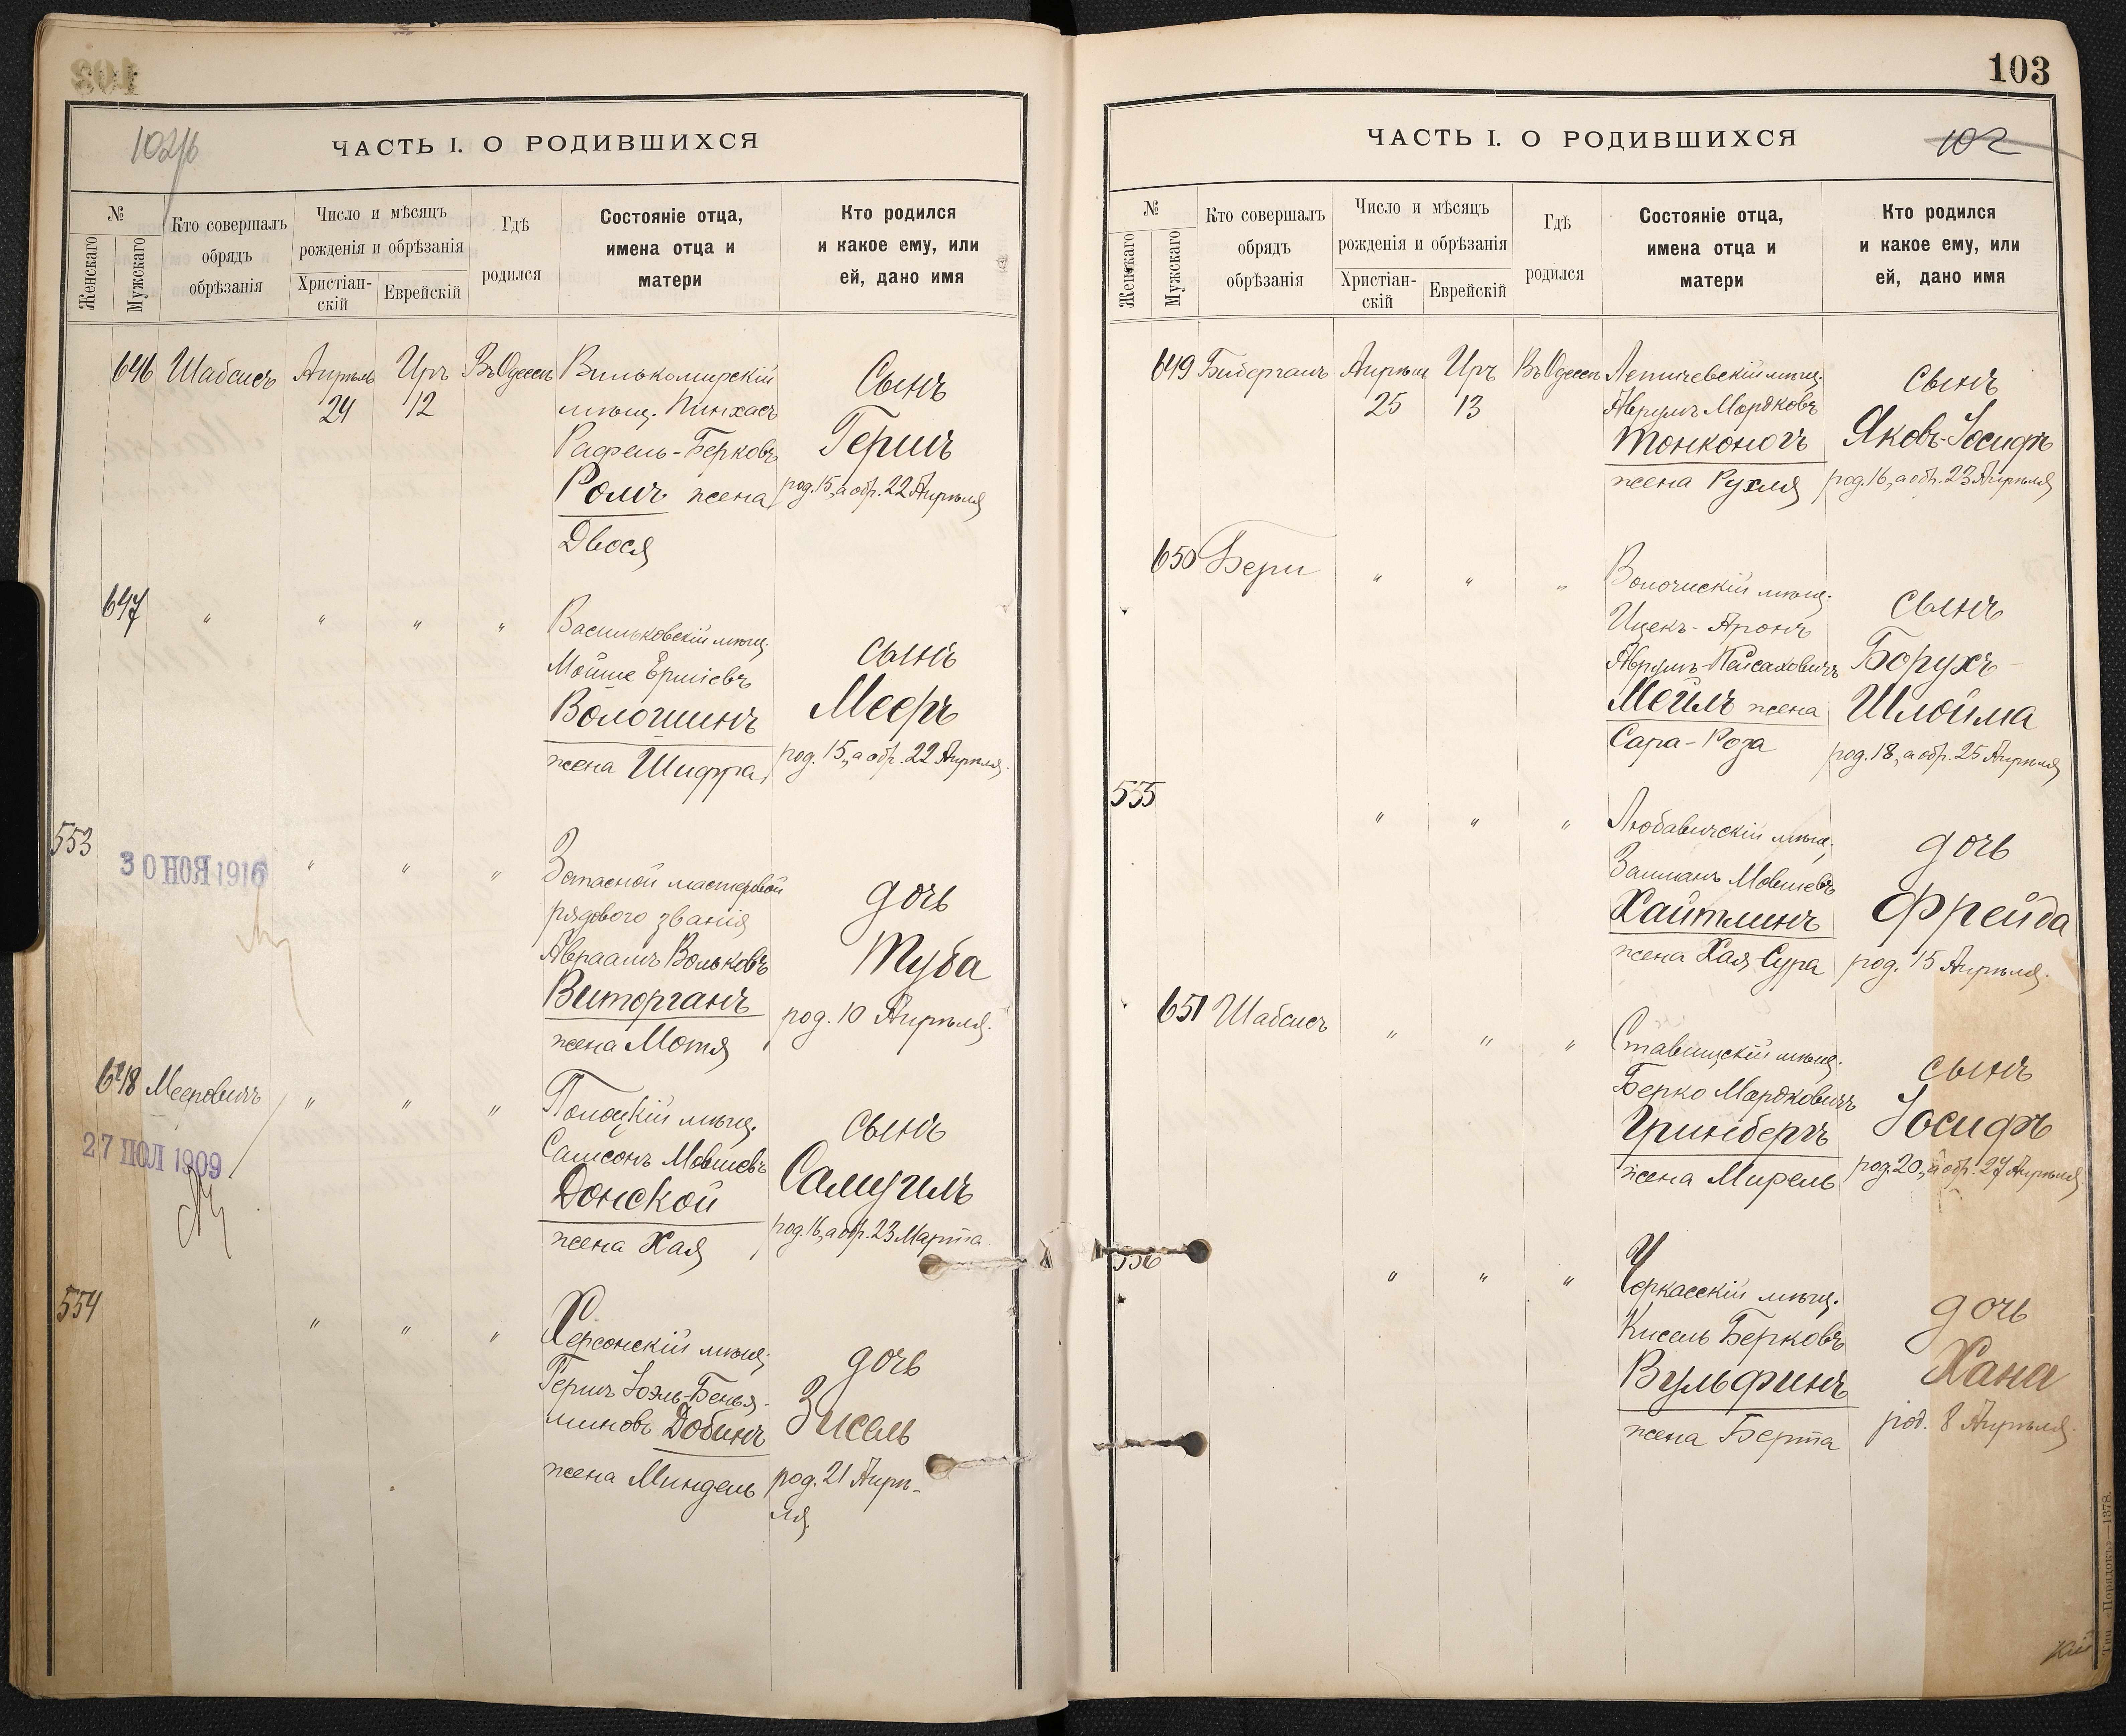 102
102 б
ЧАСТЬ I. О РОДИВШИХСЯ
№
Женскаго
Мужскаго
Кто совершалъ
обрядъ
обрѣзанія
Число и мѣсяцъ
рожденія и обрѣзанія
Христіан-
скій
Еврейскій
Гдѣ
родился
Состояніе отца,
имена отца и
матери
Кто родился
и какое ему, или
ей, дано имя
646 Шабсисъ Апрѣль Иръ Въ Одессѣ Вилькомирскій
24 12 мѣщ. Пинхасъ
Рафель-Берковъ
Ромъ жена
Двося
Сынъ
Гершъ
род. 15, а обр. 22 Апрѣля
647 " " " " Васильковскій мѣщ.
Мойше Ершіевъ
Вологшинъ
жена Шифра
сынъ
Мееръ
род. 15, а обр. 22 Апрѣля.
553
30 НОЯ 1916
" " " Запасной мастеровой
рядового званія
Авраамъ Вольковъ
Виторганъ
жена Мотя
дочь
Туба
род. 10 Апрѣля.
648 Мееровичъ " " " Полоцкій мѣщ.
27 ІЮЛ 1909
Самсонъ Мовшевъ
Донской
жена Хая
сынъ
Самуилъ
род. 16, а обр. 23 Марта
554 " " " Херсонскій мѣщ.
Гершъ Іоэль-Бенья-
миновъ Добинъ
жена Миндель
дочь
Зисель
род. 21 Апрѣ-
ля.
103
ЧАСТЬ I. О РОДИВШИХСЯ
102
№
Женскаго
Мужскаго
Кто совершалъ
обрядъ
обрѣзанія
Число и мѣсяцъ
рожденія и обрѣзанія
Христіан-
скій
Еврейскій
Гдѣ
родился
Состояніе отца,
имена отца и
матери
Кто родился
и какое ему, или
ей, дано имя
649 Апрѣля Иръ Въ Одессѣ Летичевскій мѣщ.
25 13 Аврумъ Мордковъ
Тонконогъ
жена Рухля
сынъ
Яковъ-Іосифъ
род. 16, а обр. 23 Апрѣля
650 Берш " " " Волочискій мѣщ.
Ицекъ-Аронъ
Аврумъ-Пейсаховичъ
Мейлъ жена
Сара-Роза
сынъ
Борухъ-
Шлойма
род. 18, а обр. 25 Апрѣля
555 " " " Любавичскій мѣщ.
Залманъ Мовшевъ
Хайтлинъ
жена Хая-Сура
дочь
Фрейда
род. 15 Апрѣля.
651 Шабсисъ " " " Ставищскій мѣщ.
Берко Мордковичъ
Гринбергъ
жена Мирель
сынъ
Іосифъ
род. 20, а обр. 27 Апрѣля
556 " " " Черкасскій мѣщ.
Кисель Берковъ
Вульфинъ
жена Берта
дочь
Хана
род. 8 Апрѣля.
Тип. „Порядокъ“—1378.